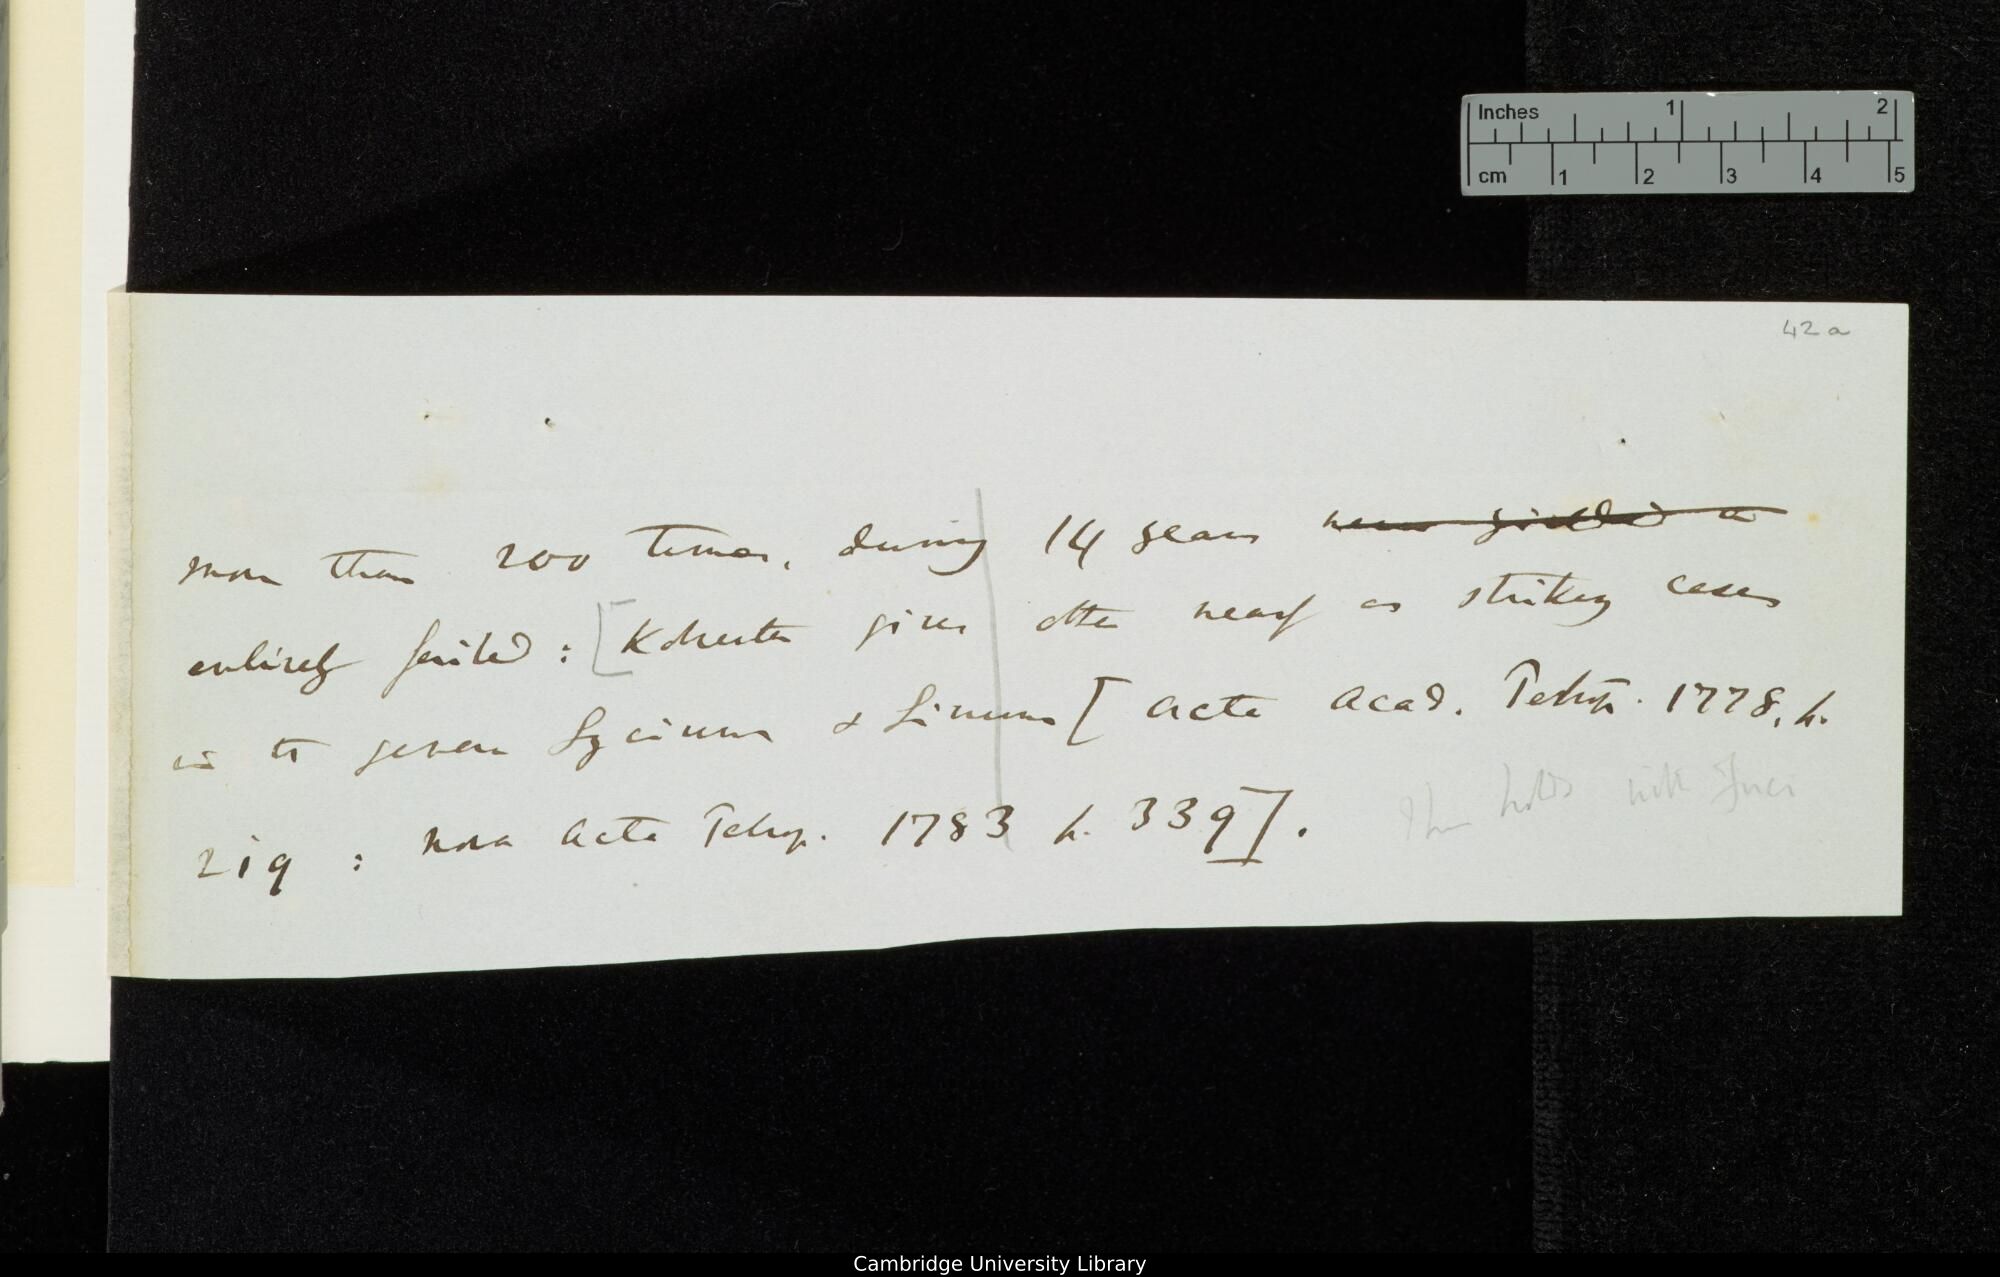 Inches 1 2
cm 1 2 3 4 5
42a
more than 200 times, during 14 years never yielded a
entirely failed : [Kolreuter gives other nearly as striking cases
in the genera Lycium & Linum [Acta Acad. Petrop. 1778, p.
219 : Nova Acta Petrop. 1783 p. 339].
This holds with Fuci
Cambridge University Library